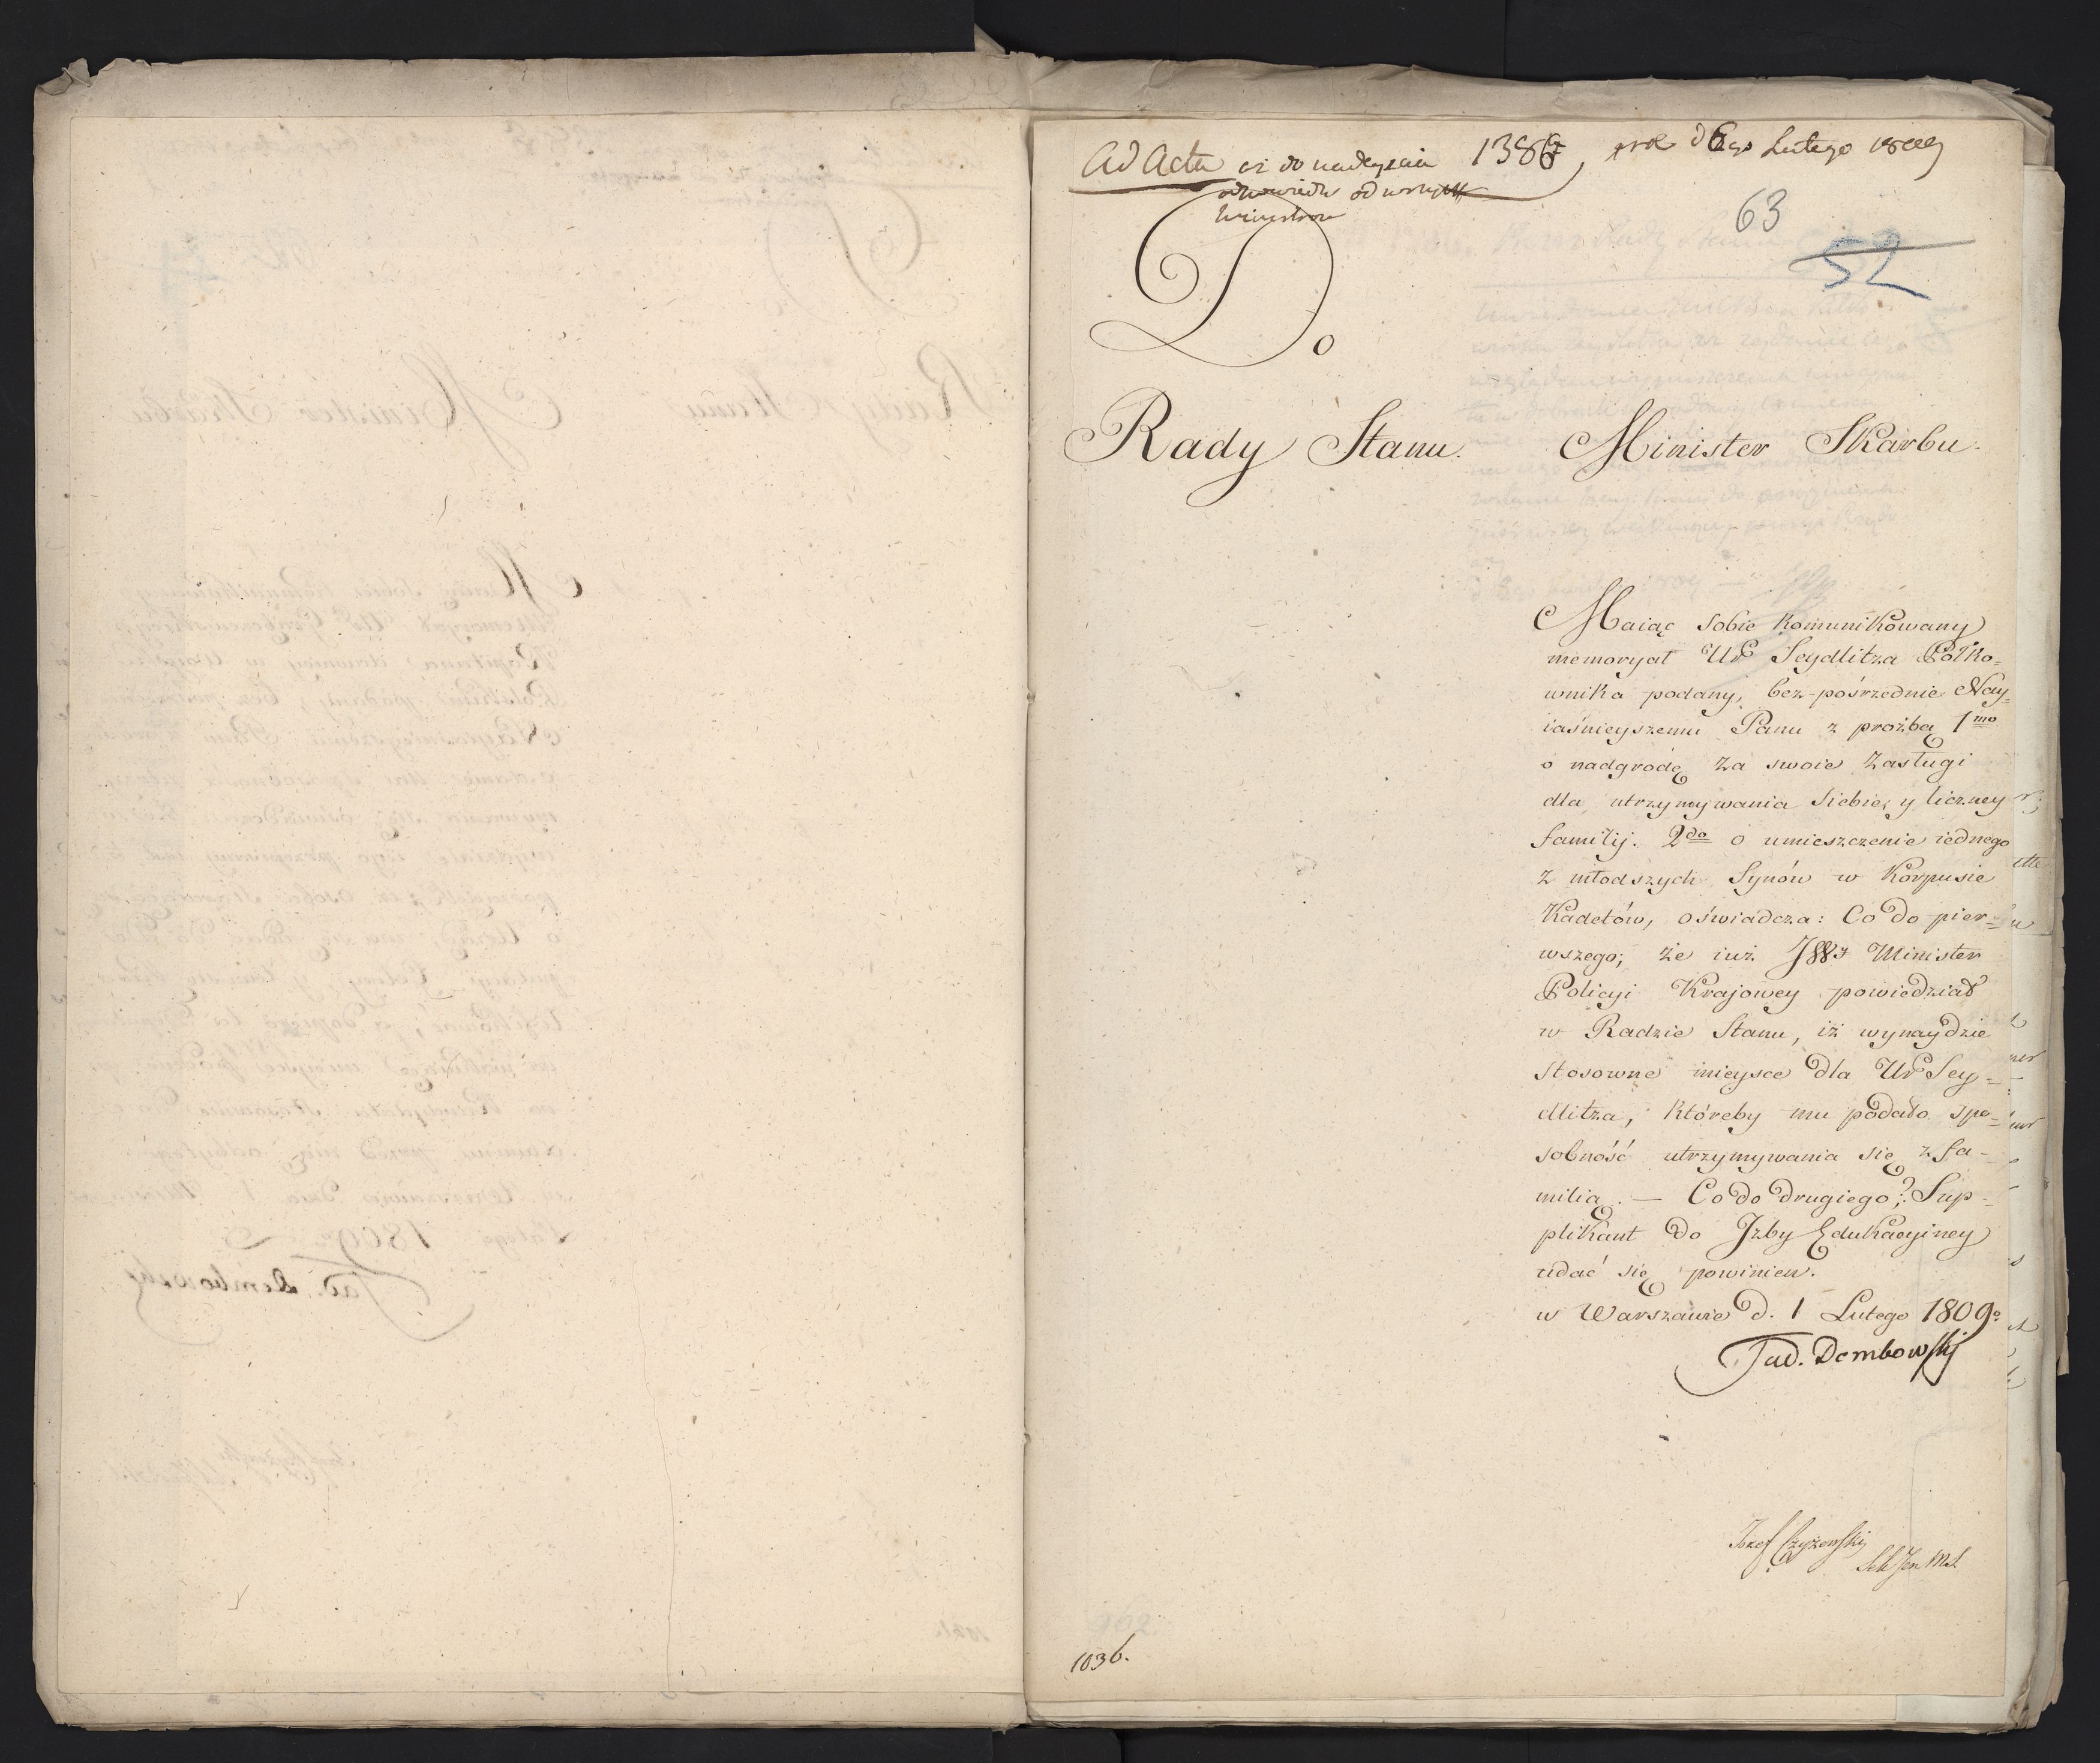 Ad Acta aż do nadeyścia 1386, prod d 6go Lutego 1809
odpowiedzi od wszystk
Ministrow
63
52
Do
Rady Stanu. Minister Skarbu.
Maiąc sobie kommunikowany
memoryał Ur Seydlitza Półko=
wnika podany, bez-pośrzednie Nay=
iaśnieyszemu Panu z proźbą 1mo
o nadgrodę za swoie zasługi
dla utrzymywania siebie, y liczney
familij. 2do o umieszczenie iednego
z młodszych Synów w Korpusie
Kadetów, oświadcza: Co do pier=
wszego; że iuż JWJ Minister
Policyi Krajowey powiedział
w Radzie Stanu, iż wynaydzie
stosowne mieysce dla Ur Sey=
dlitza, któreby mu podało spo=
sobność utrzymywania się z fa-
milią. — Co do drugiego: Sup-
plikant do Izby Edukacyiney
udać się powinien.
w Warszawie d. 1 Lutego 1809o
Tad. Dembowski
Jozef Czyżewski
Sek Jen MS.
1036.